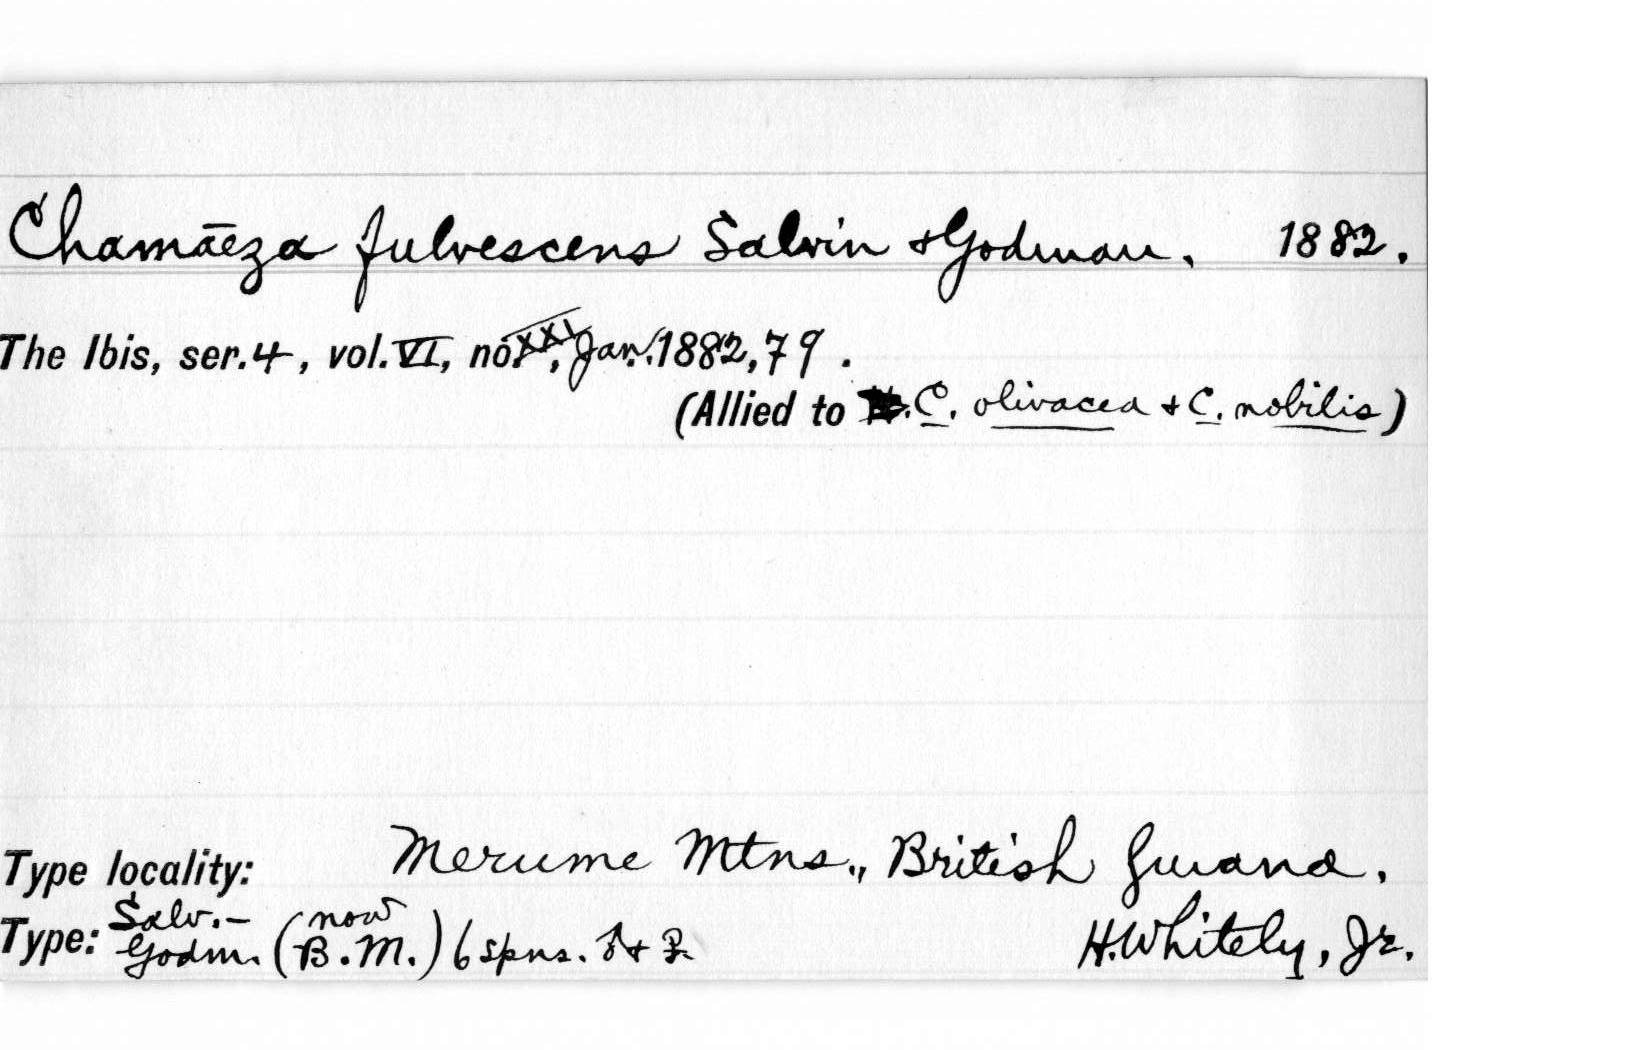 Chamāeza fulvescens Salvin & Godman. 1882.
The Ibis, ser. 4, vol. VI, no. XXI, Jan. 1882, 79.
(Allied to C. olivacea & C. nobilis)
Type locality: Merume Mtns., British Guiana.
Type: Salv.-Godm. (now B.M.) 6 spns. ♂ & ♀. H. Whitely, Jr.